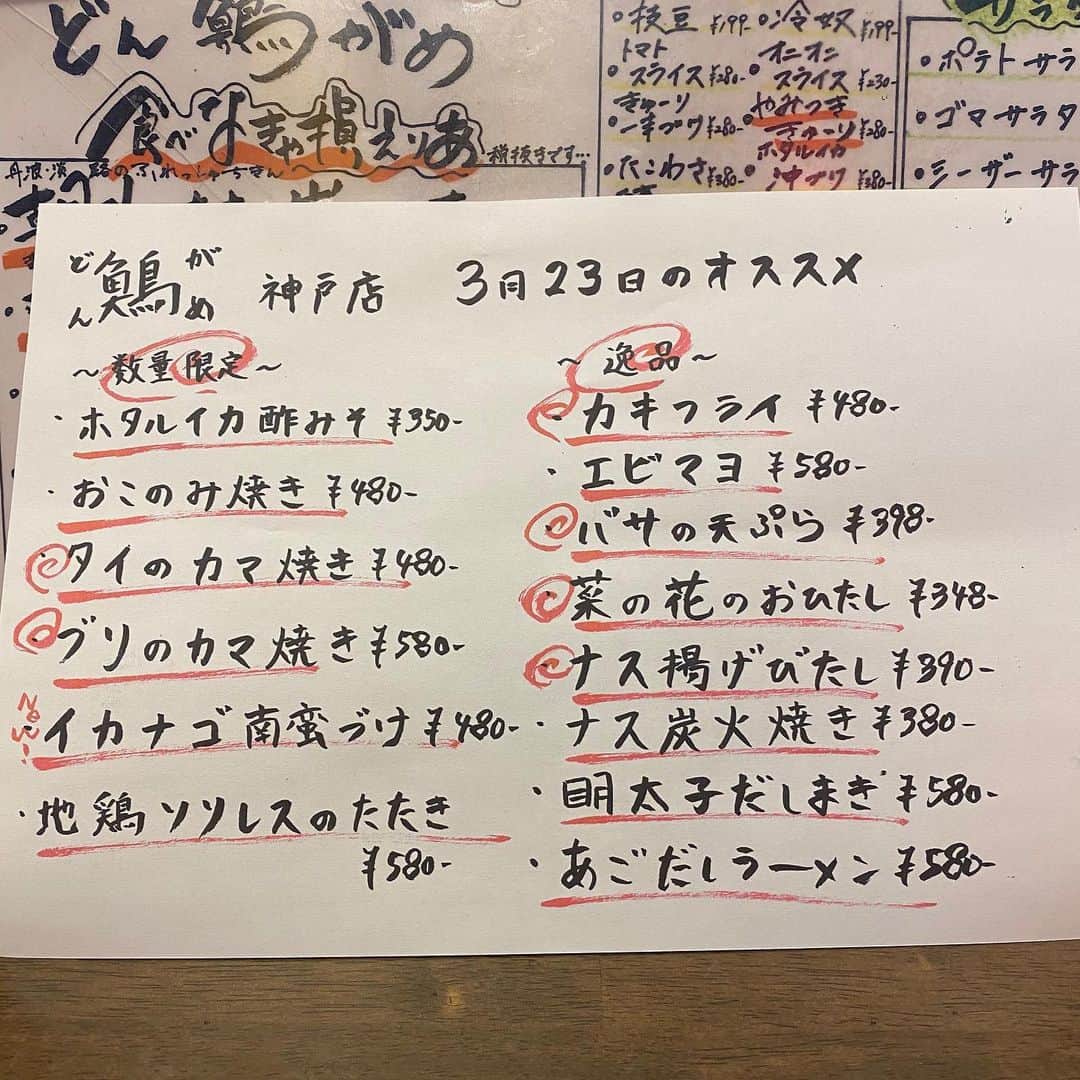 どん
がめ
食べなきゃ損えりあ
税抜きです…
・枝豆 ¥199-
・冷奴 ¥199-
トマト
・スライス ¥280-
オニオン
・スライス ¥230-
きゅーり
・一本づけ ¥280-
・やみつき
きゅーり ¥280-
・たこわさ ¥380-
ホタルイカ
・沖づけ ¥380-
サラダ
・ポテトサラ
・ゴマサラダ
・シーザーサラ
どん
がめ
神戸店 3月23日のオススメ
~数量限定~
・ホタルイカ酢みそ ¥350-
・おこのみ焼き ¥480-
・タイのカマ焼き ¥480-
・ブリのカマ焼き ¥580-
New!
イカナゴ南蛮づけ ¥480-
・地鶏ソリレスのたたき
¥580-
~逸品~
・カキフライ ¥480-
・エビマヨ ¥580-
・バサの天ぷら ¥398-
・菜の花のおひたし ¥348-
・ナス揚げびたし ¥390-
・ナス炭火焼き ¥380-
・明太子だしまき ¥580-
・あごだしラーメン ¥580-